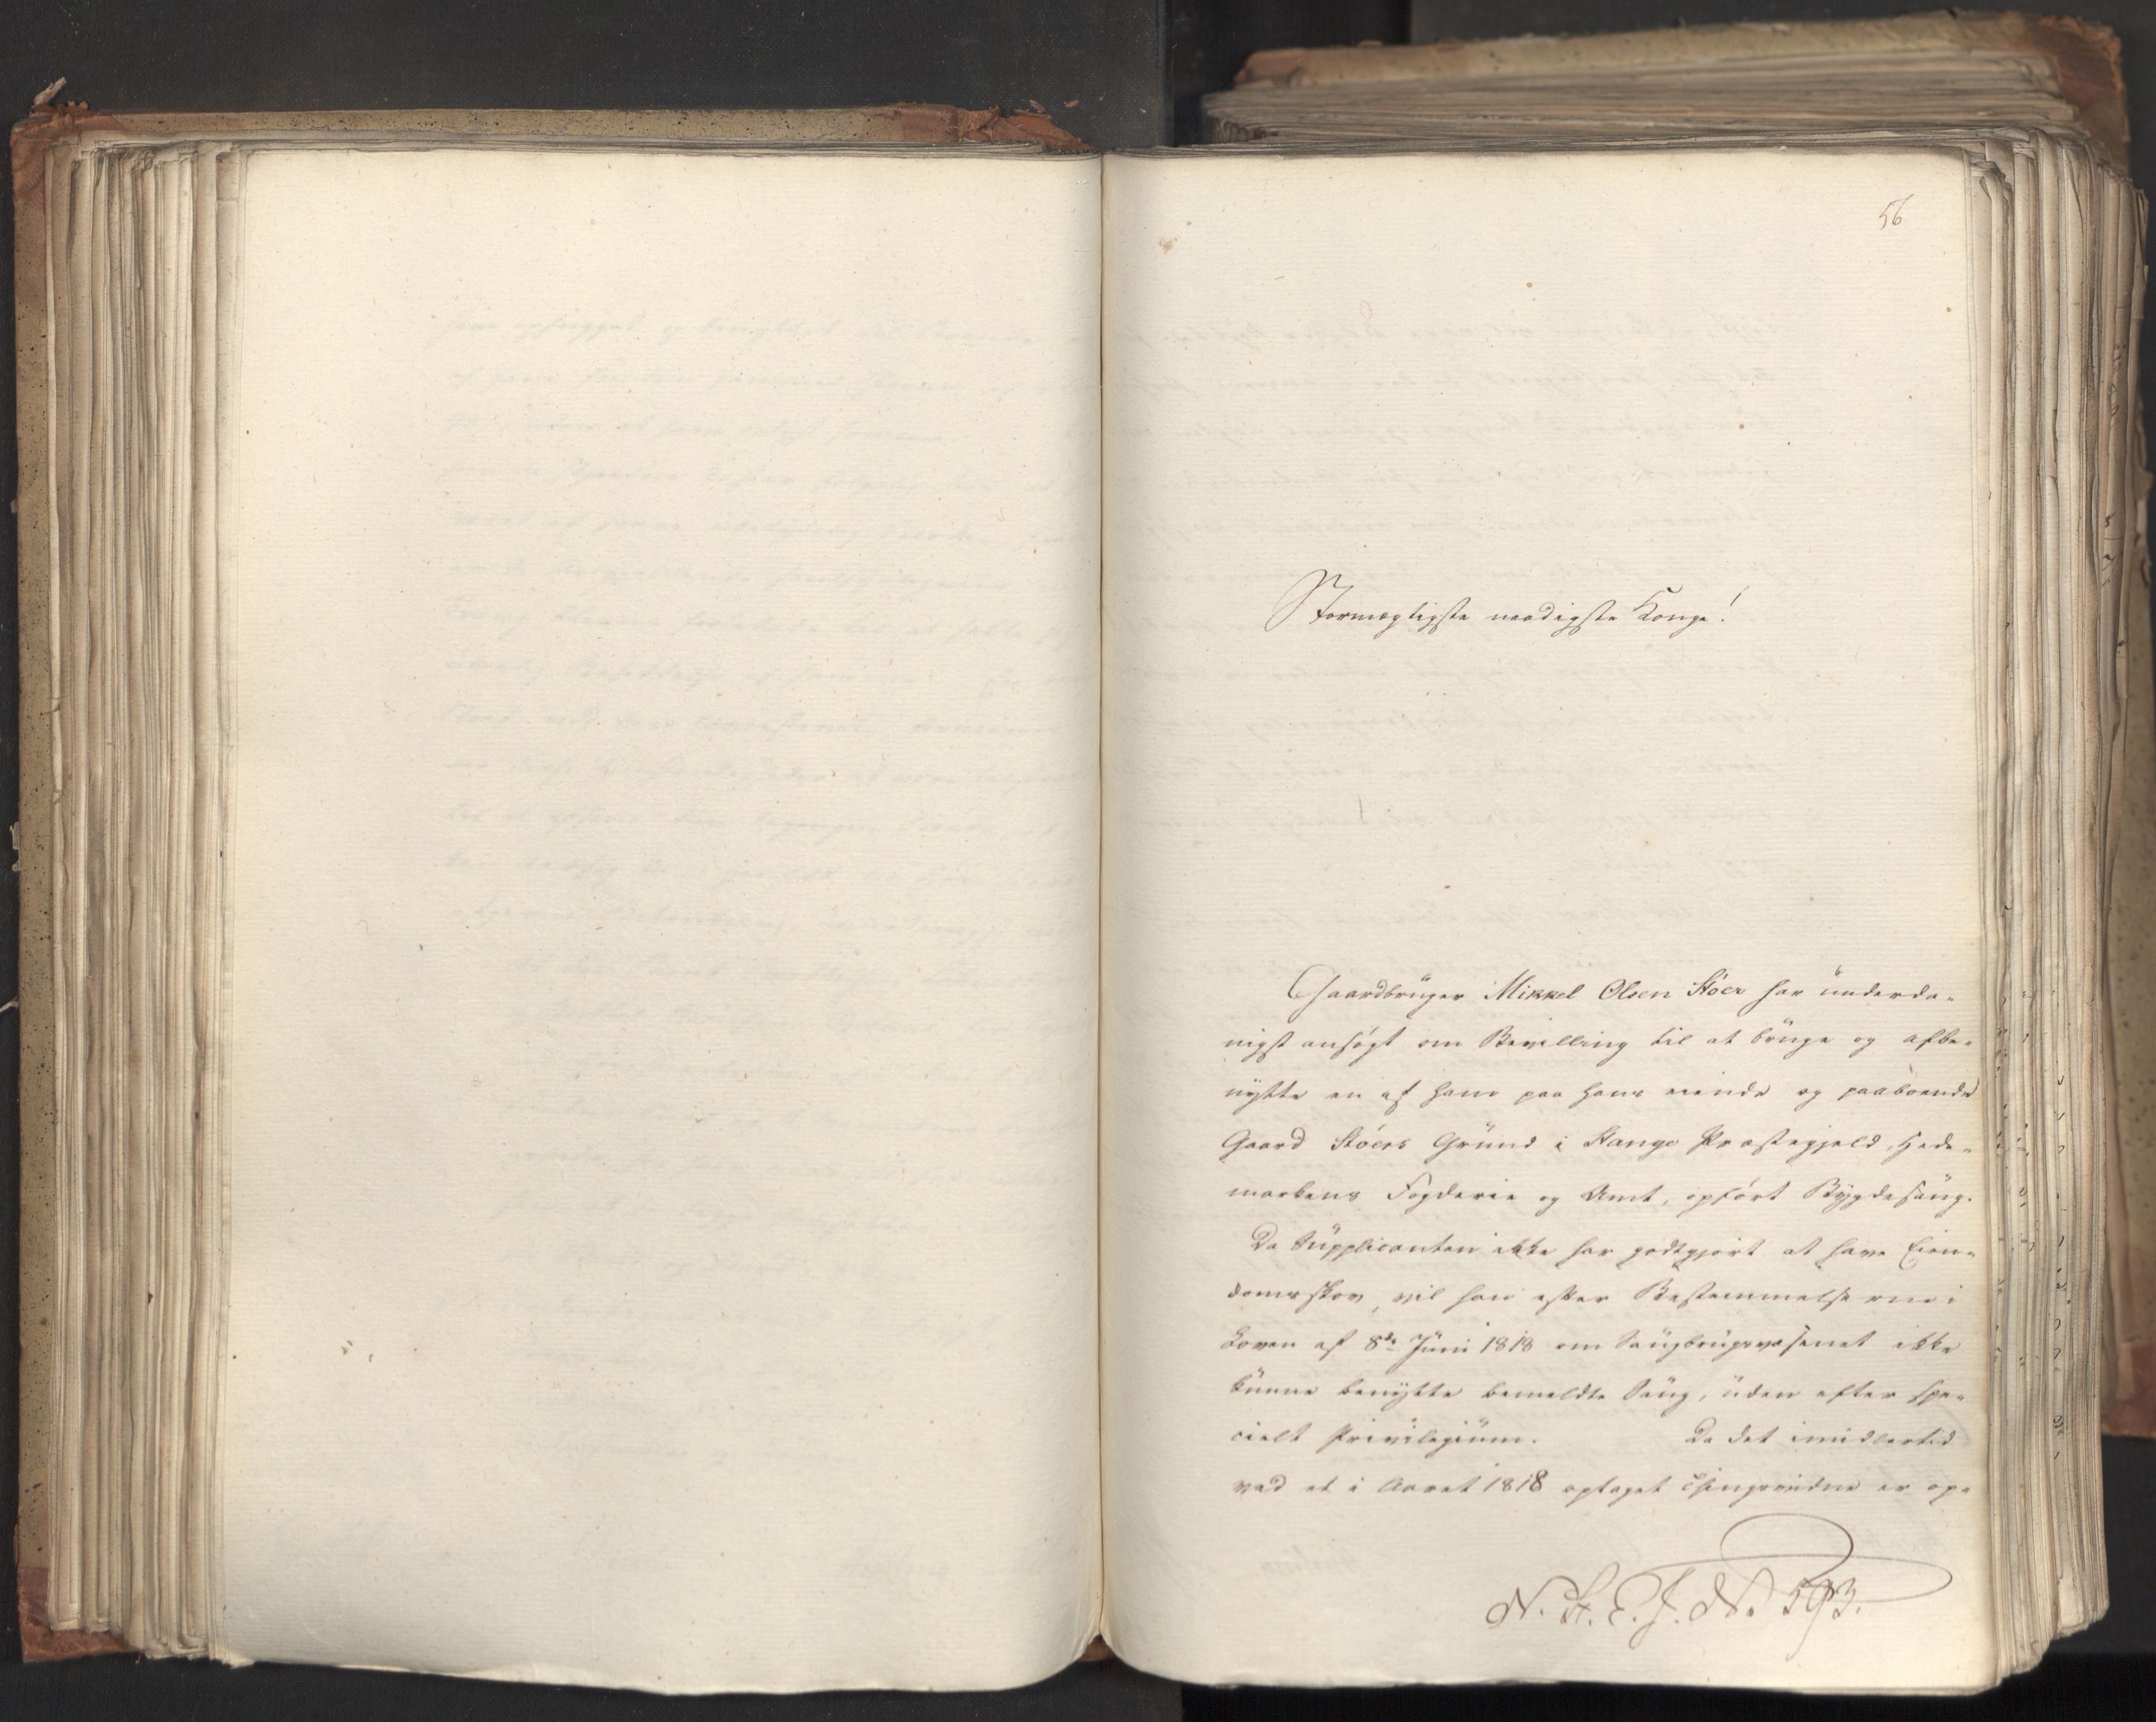 56
Stormægtigste naadigste Konge!
Gaardbruger Mikkel Olsen Stöer har underda-
nigst ansøgt om Bevilling til at bruge og afbe-
nytte en af ham paa hans eiende og paaboende
Gaard Stöers Grund i Stange Præstegjeld, Hede-
markens Fogderie og Amt, opført Bygdesaug.
Da Supplicanten ikke har godtgjort at have Eien-
domsskov, vil han efter Bestemmelserne i
Loven af 8de Juni 1818 om Saugbrugsvæsenet ikke
kunne benytte bemeldte Saug, uden efter spe-
cielt Privilegium. Da det imidlertid
ved et i Aaret 1818 optaget Thingsvidne er op-
N. St. E. J. No. 593.